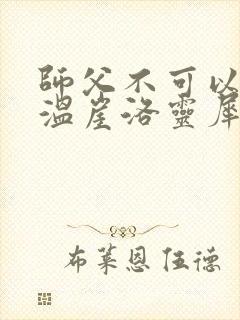 師父不可以
溫崖洛靈犀
布萊恩伍德